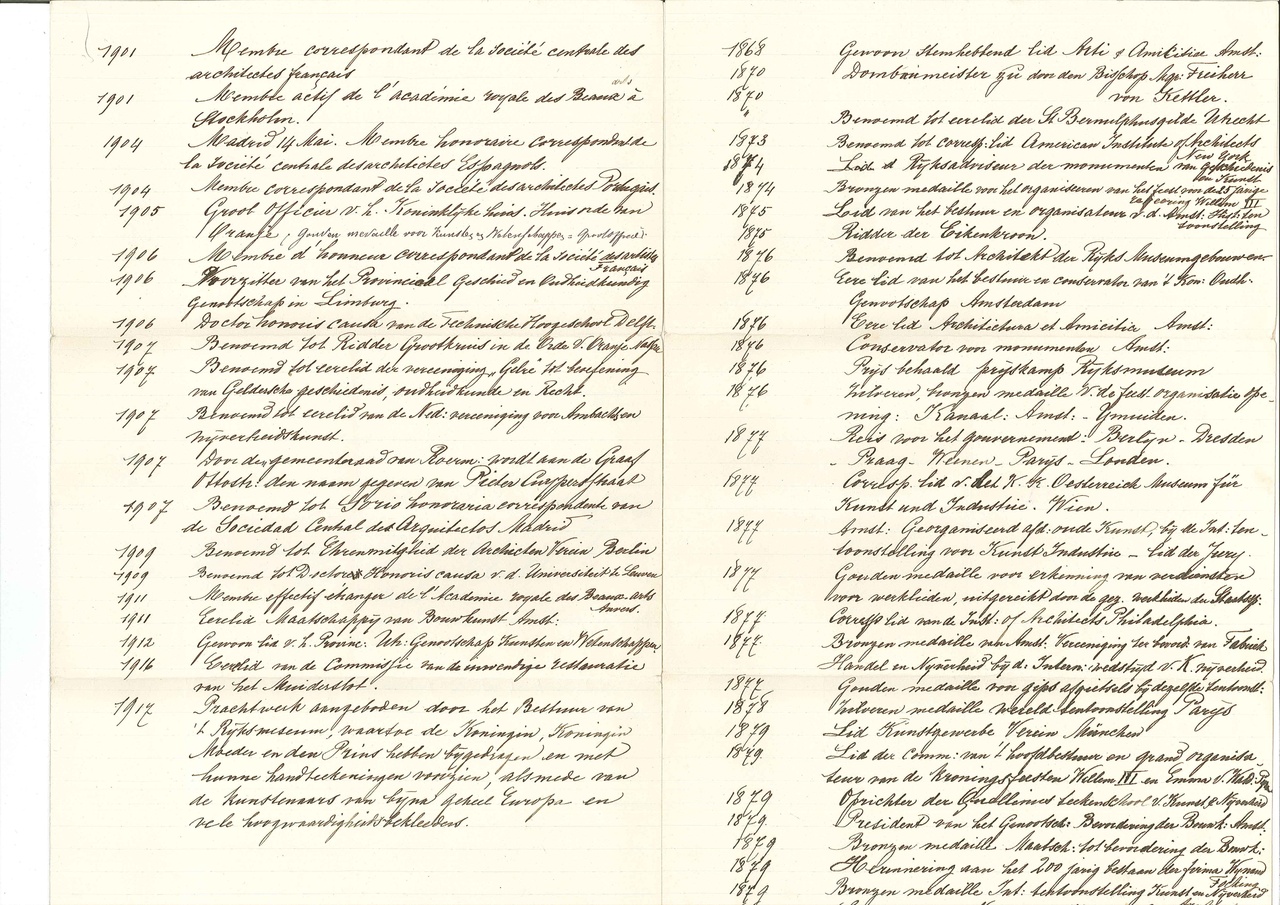 1901 Membre correspondant de la Société centrale des
architectes français
1901 Membre actif de l'académie royale des Beaux arts à
Stockholm.
1904 Madrid 14 Mai. Membre honoraire correspondant de
la Société centrale des architectes Espagnols.
1904 Membre correspondant de la Société des architectes Portugais.
1905 Groot Officier v. h. Koninklijke huis. Huisorde van
Oranje, gouden medaille voor Kunsten en Wetenschappen =
1906 Membre d'honneur correspondant de la Société des artistes
Français
1906 Voorzitter van het Provinciaal Geschied en Oudheidkundig
Genootschap in Limburg.
1906 Doctor honoris causa van de Technische Hoogeschool Delft.
1907 Benoemd tot Ridder Grootkruis in de Orde v. Oranje Nassau
1907 Benoemd tot eerelid der vereeniging „Gelre" tot beoefening
van Geldersche geschiedenis, oudheidkunde en Recht.
1907 Benoemd tot eerelid van de Ned: vereeniging voor Ambachts en
nijverheidskunst.
1907 Door den gemeenteraad van Roerm: wordt aan de Graaf
Ottostr: den naam gegeven van Pieter Cuypersstraat
1907 Benoemd tot Sorio honoraria correspondente van
de Sociedad Central des Arquitectos Madrid
1909 Benoemd tot Ehrenmitglied der Architecten Verein Berlin
1909 Benoemd tot Doctor Honoris causa v. d. Universiteit te Leuven
1911 Membre effectif etranger de l'Academie royale des Beaux-arts
Anvers.
1911 Eerelid Maatschappij van Bouwkunst Amst:
1912 Gewoon lid v. h. Provinc: Utr: Genootschap Kunsten en Wetenschappen
1916 Eerelid van de Commissie van de inwendige restauratie
van het Muiderslot.
1917 Prachtwerk aangeboden door het Bestuur van
't Rijksmuseum, waartoe de Koningin, Koningin
Moeder en den Prins hebben bijgedragen en met
hunne handteekeningen voorzien, alsmede van
de kunstenaars van bijna geheel Europa en
vele hoogwaardigheidsbekleeders.
1868 Gewoon Stemhebbend lid Arti & Amicitiae Amst:
1870 Dombaumeister zu door den Bisschop Mgr: Freiherr
1870 von Kettler.
" Benoemd tot eerelid der St Bernulphusgilde Utrecht
1873 Benoemd tot corresp: lid American Institute of Architects
New York
1874 Lid d Rijksadviseur der monumenten van geschiedenis
en Kunst
1874 Bronzen medaille voor het organiseren van het feest van de 25 jarige
regeering Willem III
1875 Lid van het bestuur en organisateur v. d. Amst: Hist: ten
toonstelling
1875 Ridder der Eikenkroon.
1876 Benoemd tot Architekt der Rijks Museumgebouwen
1876 Eere lid van het bestuur en conservator van 't Kon: Oudh-
Genootschap Amsterdam
1876 Eere lid Architectura et Amicitia Amst:
1876 Conservator voor monumenten Amst:
1876 Prijs behaald prijskamp Rijksmuseum
1876 Zilveren, bronzen medaille v. d. feest organisatie ope-
ning: Kanaal: Amst: - Ymuiden.
1877 Reis voor het gouvernement: Berlijn - Dresden
- Praag - Weenen - Parijs - Londen.
1877 Corresp. lid v. det K. K. Oesterreich Museum für
Kunst und Industrie. Wien.
1877 Amst: Georganiseerd afd. oude Kunst, bij de Int: ten-
toonstelling voor Kunst Industrie - lid der Jury.
1877 Gouden medaille voor erkenning van verdiensten
voor werklieden, uitgereikt door de gez. werklieden der Staatssp:
1877 Corresp lid van de Inst: of Architects Philadelphia.
1877 Bronzen medaille van Amst: Vereeniging ter bevord: van Fabriek
Handel en Nijverheid bij d: Intern: wedstrijd v. K. nijverheid
1877 Gouden medaille voor gips afgietsels bij dezelfde tentoonst:
1878 Zilveren medaille wereld tentoonstelling Parijs
1879 Lid Kunstgewerbe Verein München
1879 Lid der Comm: van 't hoofdbestuur en grand organisa-
teur van de Kroningsfeesten Willem III en Emma v. Wald: Pyrm
1879 Oprichter der Quellinus teekenschool v. Kunst & Nijverheid
1879 President van het Genootsch: Bevordering der Bouwk: Amst.
1879 Bronzen medaille Maatsch: tot bevordering der Bouwk:
1879 Herinnering aan het 200 jarig bestaan der firma Wijnand
Focking
1879 Bronzen medaille Int: tentoonstelling Kunst en Nijverheid